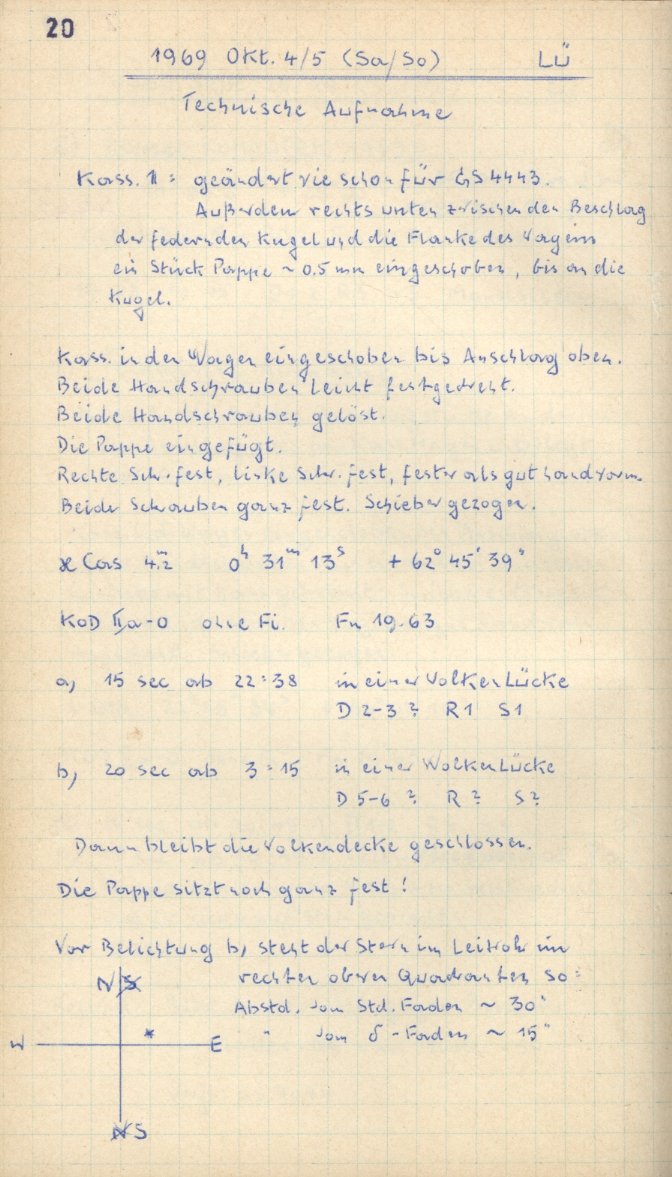 20
1969 Okt. 4/5 (Sa/So) LÜ
Technische Aufnahme
Kass. II = geändert wie schon für GS 4443.
Außerdem rechts unten zwischen den Beschlag
der federnden Kugel und die Flanke des Wagens
ein Stück Pappe ~ 0.5 mm eingeschoben, bis an die
Kugel.
Kass. in den Wagen eingeschoben bis Anschlag oben.
Beide Handschrauben leicht festgedreht.
Beide Handschrauben gelöst.
Die Pappe eingefügt.
Rechte Schr. fest, linke Schr. fest, fester als gut handwarm.
Beide Schrauben ganz fest. Schieber gezogen.
κ Cas 4.ᵐ2 0ʰ 31ᵐ 13ˢ + 62° 45' 39"
KOD IIa-O ohne Fi. Fn 19.63
a, 15 sec ab 22:38 in einer Wolkenlücke
D 2-3 ? R 1 S 1
b, 20 sec ab 3:15 in einer Wolkenlücke
D 5-6 ? R ? S ?
Dann bleibt die Wolkendecke geschlossen.
Die Pappe sitzt noch ganz fest!
Vor Belichtung b, steht der Stern im Leitrohr im
rechten oberen Quadranten so:
Abstd. vom Std. Faden ~ 30"
" vom δ-Faden ~ 15"
N S
W E
N S